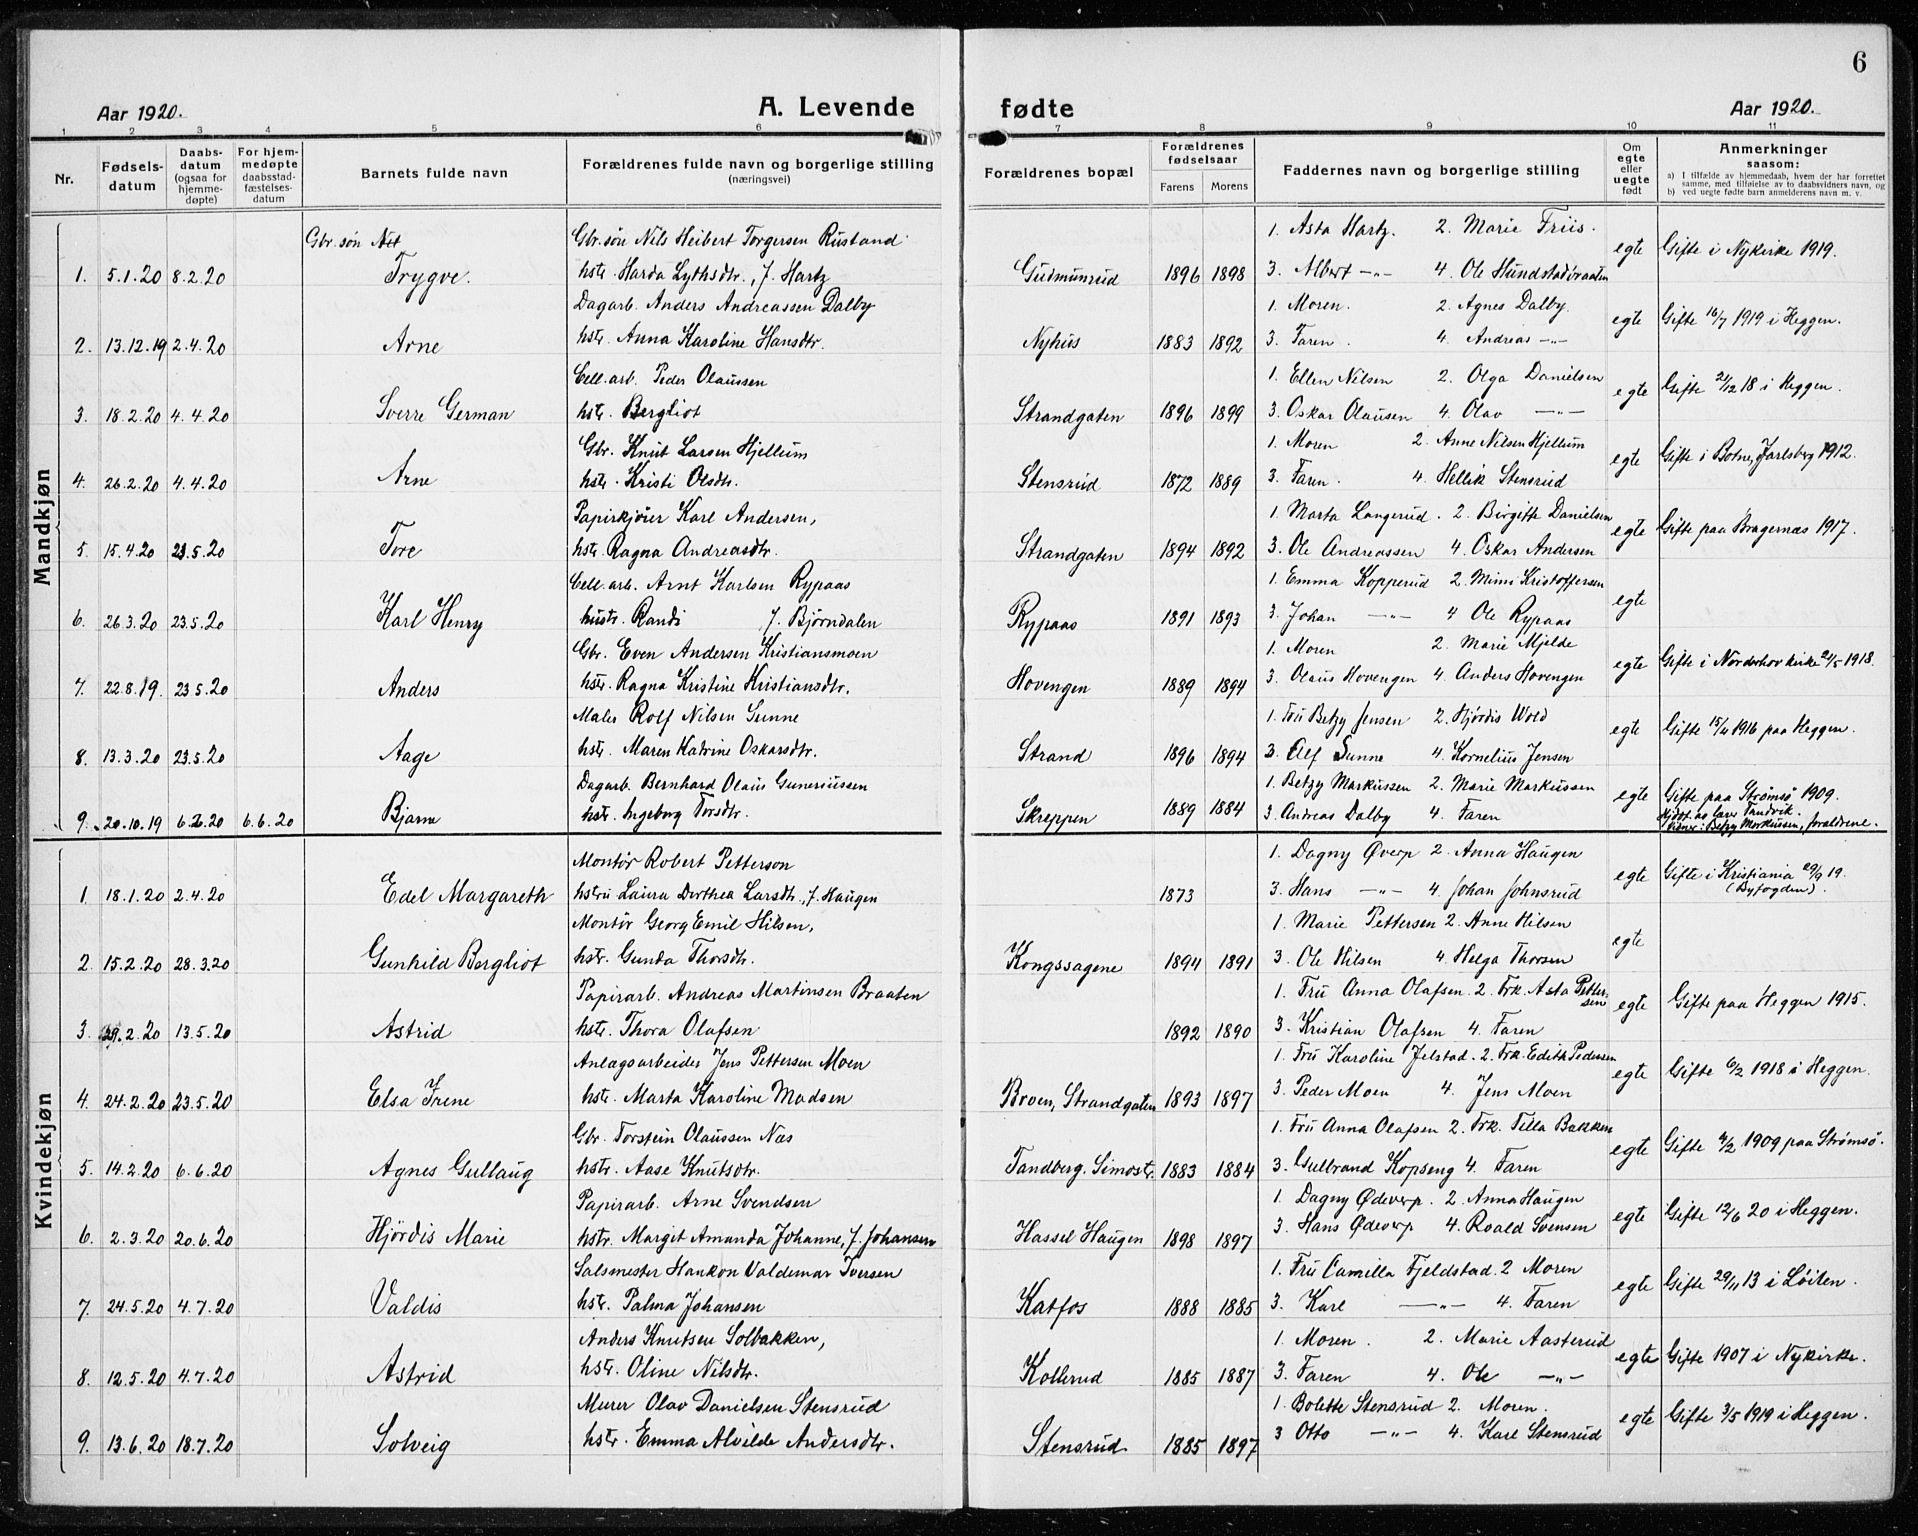 6
Aar 1920.
A. Levende
fødte
Aar 1920.
1 2 3 4 5 6 7 8 9 10 11
Nr.
Fødsels-
datum
Daabs-
datum
(ogsaa for
hjemme-
døpte)
For hjem-
medøpte
daabsstad-
fæstelses-
datum
Barnets fulde navn
Forældrenes fulde navn og borgerlige stilling
(næringsvei)
Forældrenes bopæl
Forældrenes
fødselsaar
Farens Morens
Faddernes navn og borgerlige stilling
Om
egte
eller
uegte
født
Anmerkninger
saasom:
a) I tilfælde av hjemmedaab, hvem der har forrettet
samme, med tilføielse av to daabsvidners navn, og
b) ved uegte fødte barn anmelderens navn m. v.
Mandkjøn
Gbr. søn Gbr. søn Nils Heibert Torgersen Rustand 1. Asta Hartz. 2. Marie Friis.
1. 5.1.20 8.2.20 Trygve. hstr. Harda Lythsdtr., f. Hartz Gudmunrud 1896 1898 3. Albert -"- 4. Ole Hundstadbraaten egte Gifte i Nykirke 1919.
Dagarb. Anders Andreassen Dalby 1. Moren. 2. Agnes Dalby.
2. 13.12.19 2.4.20 Arne hstr. Anna Karoline Hansdtr. Nyhus 1883 1892 3. Faren. 4. Andreas -"- egte Gifte 16/7 1919 i Heggen.
Cell. arb. Peder Olaussen 1. Ellen Nilsen 2. Olga Danielsen
3. 18.2.20 4.4.20 Sverre German hstr. Bergliot Strandgaten 1896 1899 3. Oskar Olausen 4. Olav -"- egte Gifte 21/12 18 i Heggen.
Gbr. Knut Larsen Hjellum 1. Moren 2. Anne Nilsen Hjellum
4. 26.2.20 4.4.20 Arne hstr. Kristi Olsdtr. Stensrud 1872 1889 3. Faren. 4. Hellik Stensrud egte Gifte i Botne, Jarlsberg 1912.
Papirkjører Karl Andersen, 1. Marta Langerud. 2. Birgitte Danielsen
5. 15.4.20 23.5.20 Tore hstr. Ragna Andreasdtr. Strandgaten 1894 1892 3. Ole Andreassen 4. Oskar Andersen egte Gifte paa Bragernæs 1917.
Cell. arb. Arnt Karlsen Rypaas 1. Emma Kopperud 2. Mimi Kristoffersen
6. 26.3.20 23.5.20 Karl Henry hustr. Randi f. Bjørndalen Rypaas 1891 1893 3. Johan -"- 4 Ole Rypaas egte
Gbr. Even Andersen Kristiansmoen 1. Moren 2. Marie Mjelde
7. 22.8.19. 23.5.20 Anders hstr. Ragna Kristine Kristiansdtr. Hovengen 1889 1894 3. Olaus Hovengen 4. Anders Hovengen egte Gifte i Norderhov kirke 24/5 1918.
Maler Rolf Nilsen Sunne 1. Fru Betzy Jensen 2. Hjørdis Wold
8. 13.3.20 23.5.20 Aage hstr. Maren Katrine Oskarsdtr. Strand 1896 1894 3. Alf Sunne 4. Kornelius Jensen egte Gifte 15/4 1916 paa Heggen.
Dagarb. Bernhard Olaus Guneriussen 1. Betzy Markussen 2. Marie Markussen
9. 20.10.19 6.2.20 6.6.20 Bjarne hstr. Ingeborg Torsdtr. Skreppen 1889 1884 3. Andreas Dalby 4. Faren egte Gifte paa Strømsø 1909.
Hjdøpt av Lærer Tandvik.
Vidner: Betzy Markussen, forældrene.
Kvindekjøn
Montør Robert Petterson 1. Dagny Øverp 2. Anna Haugen
1 18.1.20 2.4.20 Edel Margareth hstru Laura Dorthea Larsdtr., f. Haugen 1873 3. Hans -"- 4. Johan Johnsrud egte Gifte i Kristiania 29/9 19.
(Byfogden).
Montør Georg Emil Hilsen, 1. Marie Pettersen 2. Anne Hilsen
2. 15.2.20 28.3.20 Gunhild Bergliot hstr. Gunda Thorsdtr. Kongssagene 1894 1891 3. Ole Hilsen 4. Helga Thorsen egte
Papirarb. Andreas Martinsen Braaten 1. Fru Anna Olafsen. 2. Frk. Asta Petter-
sen
3. 29.2.20 13.5.20 Astrid hstr. Thora Olafsen 1892 1890 3. Kristian Olafsen 4. Faren egte Gifte paa Heggen 1915.
Anlægsarbeider Jens Pettersen Moen 1. Fru Karoline Jelstad. 2. Frk. Edith Pedersen
4. 24.2.20 23.5.20 Elsa Irene hstr. Marta Karoline Madsen Broen, Strandgaten 1893 1897 3. Peder Moen 4. Jens Moen egte Gifte 6/2 1918 i Heggen.
Gbr. Torstein Olaussen Næs 1. Fru Anna Olafsen 2. Frk. Tilla Bakken
5. 14.2.20 6.6.20 Agnes Gullaug hstr. Aase Knutsdtr. Tandberg, Simostr. 1883 1884 3. Gulbrand Kopseng 4. Faren egte Gifte 4/2 1909 paa Strømsø.
Papirarb. Arne Svendsen 1. Dagny Ødeverp. 2. Anna Haugen
6. 2.3.20 20.6.20 Hjørdis Marie hstr. Margit Amanda Johanne, f. Johansen Hassel Haugen 1898 1897 3. Hans Ødeverp 4. Roald Svensen egte Gifte 12/6 20 i Heggen.
Salsmester Haakon Valdemar Iversen 1. Fru Camilla Fjeldstad. 2 Moren
7. 24.5.20 4.7.20 Valdis hstr. Palma Johansen Katfos 1888 1885 3. Karl -"- 4. Faren egte Gifte 29/11 13 i Løiten.
Anders Knutsen Solbakken, 1. Moren. 2. Marie Aasterud
8. 12.5.20 4.7.20 Astrid hstr. Oline Nilsdtr. Kollerud 1885 1887 3. Faren 4. Ole -"- egte Gifte 1907 i Nykirke.
Murer Olav Danielsen Stensrud 1. Bolette Stensrud 2. Moren.
9. 13.6.20 18.7.20 Solveig hstr. Emma Alvilde Andersdtr. Stensrud 1885 1897 3 Otto -"- 4. Karl Stensrud egte Gifte 3/5 1919 i Heggen.